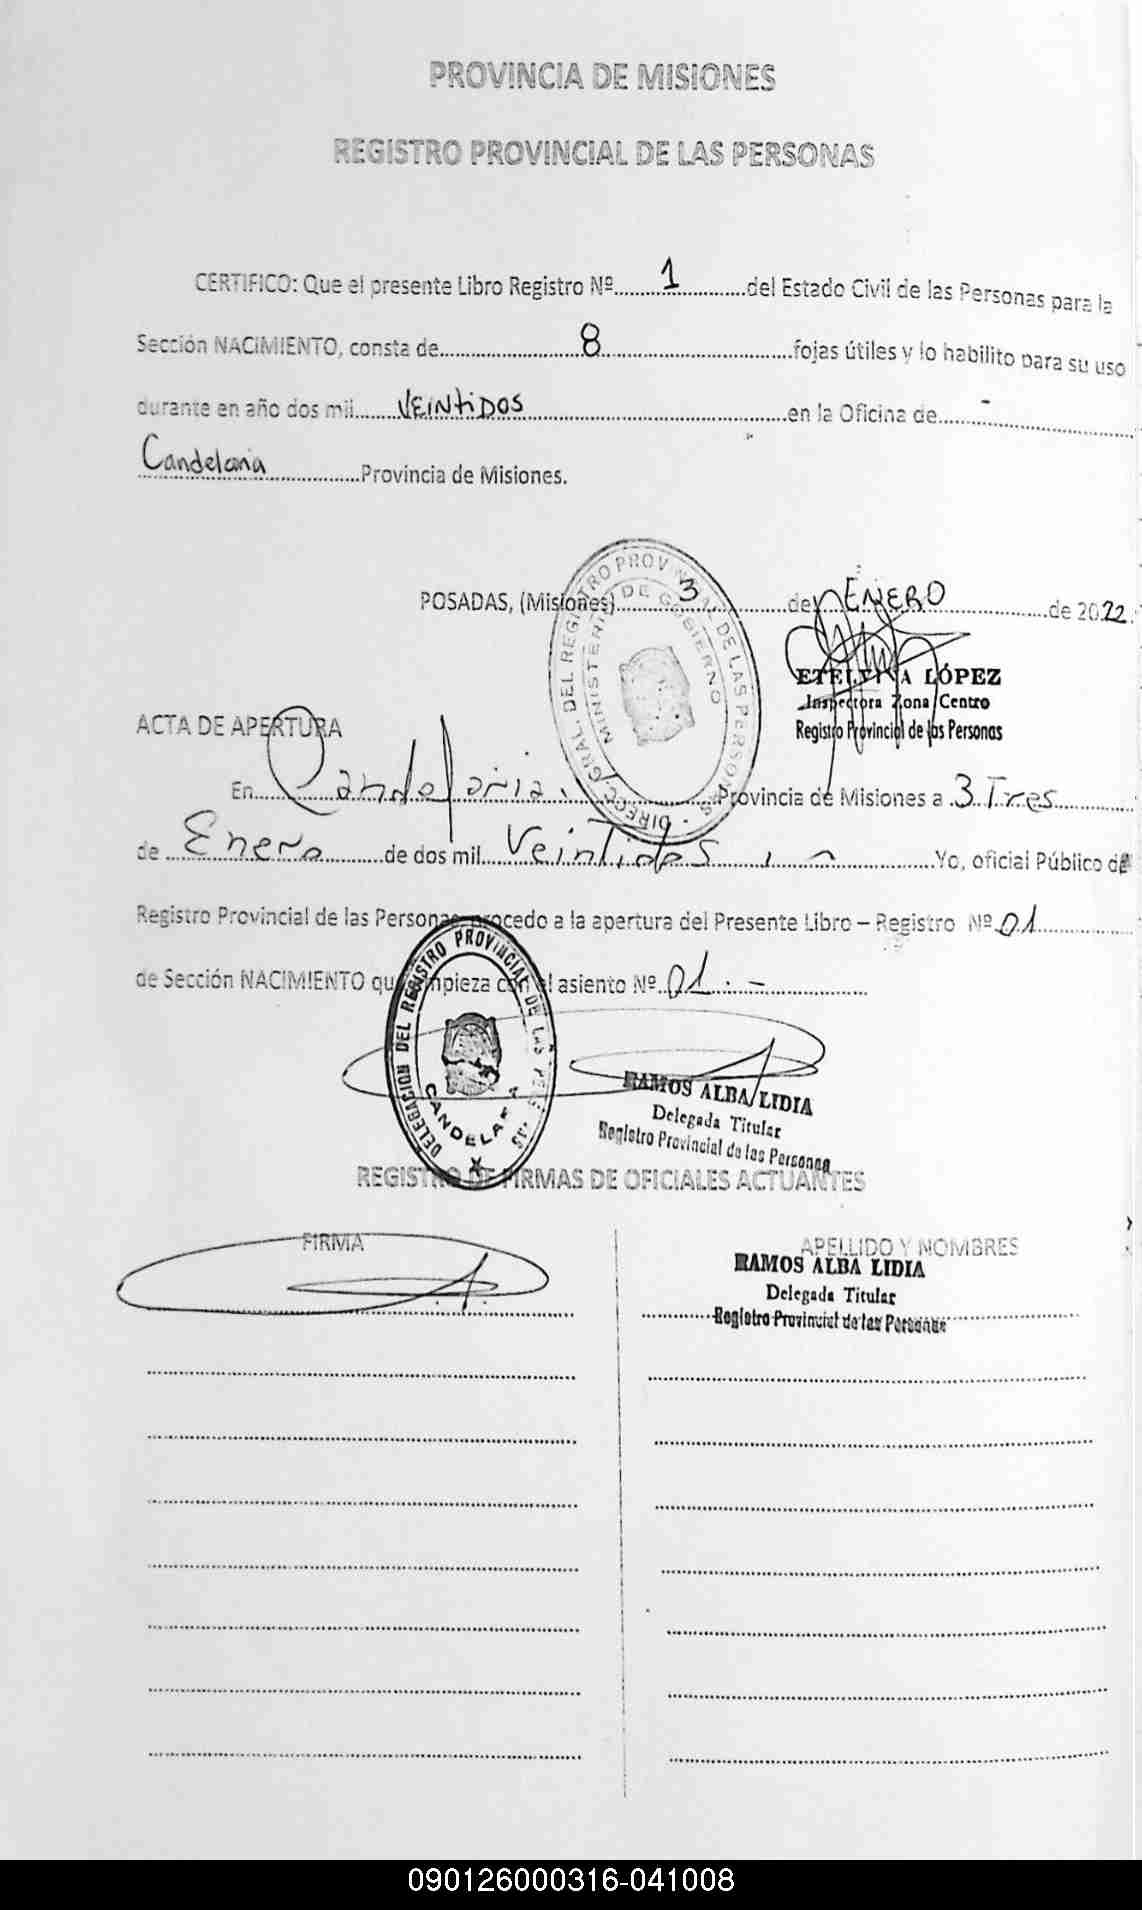 PROVINCIA DE MISIONES
REGISTRO PROVINCIAL DE LAS PERSONAS
CERTIFICO: Que el presente Libro Registro Nº 1 del Estado Civil de las Personas para la
Sección NACIMIENTO, consta de 8 fojas útiles y lo habilito para su uso
durante en año dos mil VEINTIDOS en la Oficina de -
Candelaria Provincia de Misiones.
POSADAS, (Misiones) 3 de ENERO de 2022.
DIRECC. GRAL. DEL REGISTRO PROVINCIAL DE LAS PERSONAS
MINISTERIO DE GOBIERNO
ETELVINA LÓPEZ
Inspectora Zona Centro
Registro Provincial de las Personas
ACTA DE APERTURA
En Candelaria. Provincia de Misiones a 3 Tres
de Enero de dos mil Veintidos Yo, oficial Público del
Registro Provincial de las Personas procedo a la apertura del Presente Libro – Registro Nº 01
de Sección NACIMIENTO que empieza con el asiento Nº 01.-
DELEGACION DEL REGISTRO PROVINCIAL DE LAS PERSONAS
CANDELARIA
RAMOS ALBA LIDIA
Delegada Titular
Registro Provincial de las Personas
REGISTRO DE FIRMAS DE OFICIALES ACTUANTES
FIRMA
APELLIDO Y NOMBRES
RAMOS ALBA LIDIA
Delegada Titular
Registro Provincial de las Personas
090126000316-041008